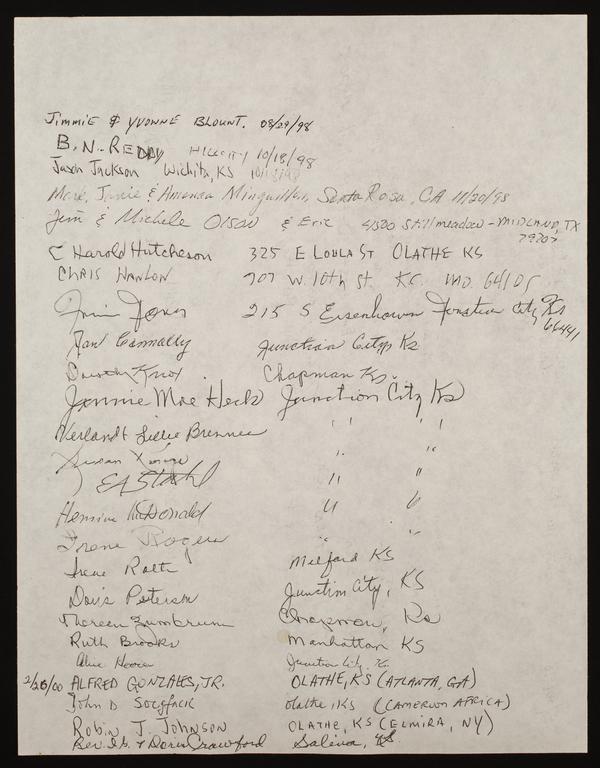 Jimmie & Yvonne Blount. 08/29/98
B.N. Reddy Hill City 10/18/98
Jason Jackson Wichita, KS 10/18/98
Mark, Janie & Amanda Santa Rosa, CA 11/20/98
Jim & Michele Olsav & Eric 4500 Stillmeadow - Midland, TX
79707
C Harold Hutcheson 325 E Loula St Olathe KS
Chris Hanlon 707 W. 10th St KC. MO. 64105
Jones 215 S Eisenhower Junction City Ks
66441
Connally Junction City, Ks
Knox Chapman Ks.
Jennie Mae Heck Junction City Ks
Lillie Brenner " "
Susan " "
" "
McDonald " "
Irene Rogers " "
Irene Roth Milford KS
Doris Peterson Junction City, KS
Thoreen Zumbrunn Chapman, Ks
Ruth Brooks Manhattan KS
Alice Hoover Junction City, Ks.
2/26/00 Alfred Gonzales, Jr. Olathe, KS (Atlanta, GA)
John D Olathe, KS (Cameroon Africa)
Robin J. Johnson Olathe, KS (Elmira, NY)
Rev. & Doris Crawford Salina, Ks.